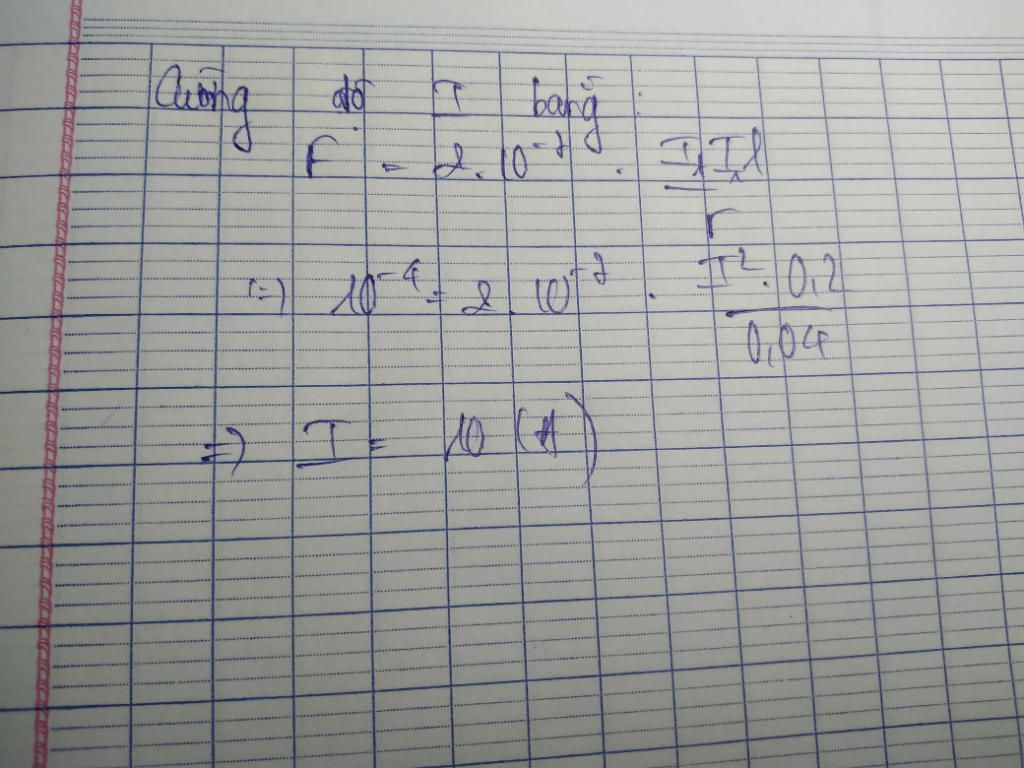 Cường độ I bằng :
F = 2.10⁻⁷ . I₁I₂l / r
(=) 10⁻⁴ = 2.10⁻⁷ . I².0,2 / 0,04
=) I = 10 (A)